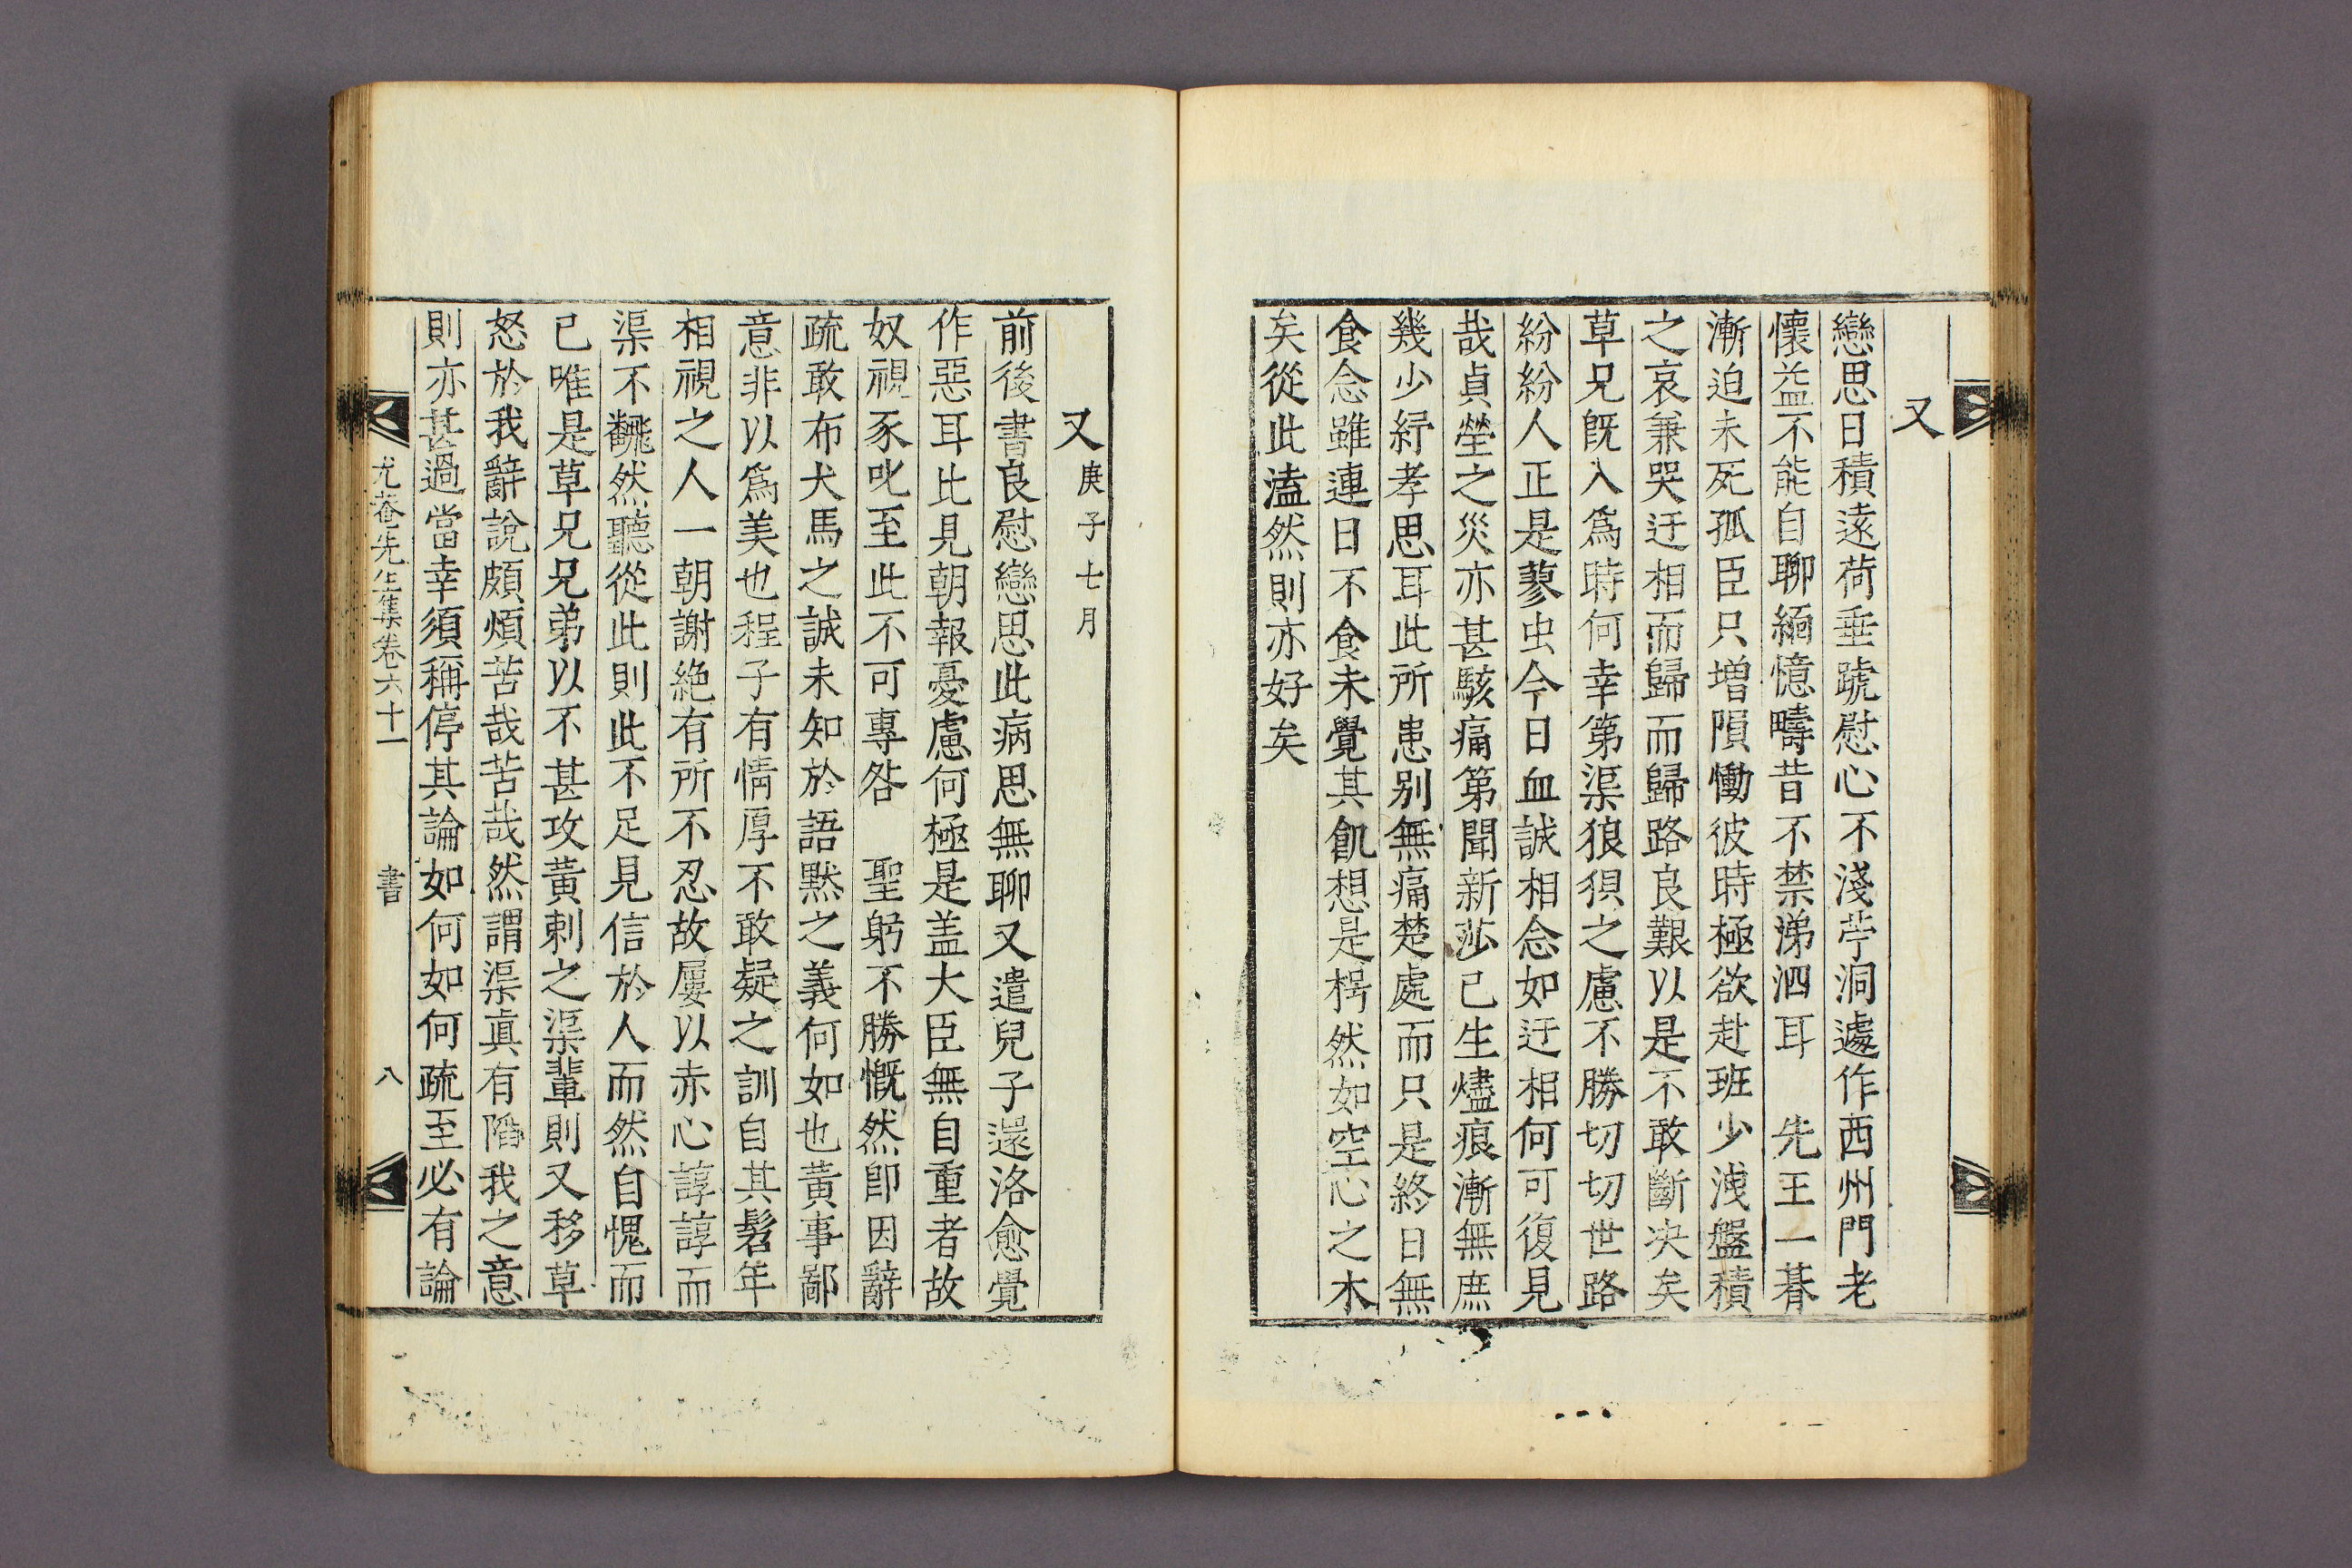 又
戀思日積遠荷垂䟽慰心不淺苧洞遽作西州門老
懷益不能自聊緬憶疇昔不禁涕泗耳　先王一朞
漸迫未死孤臣只增隕慟彼時極欲赴班少洩盤積
之哀兼哭迂相而歸而歸路良艱以是不敢斷决矣
草兄旣入爲時何幸第渠狼狽之慮不勝切切世路
紛紛人正是蓼虫今日血誠相念如迂相何可復見
哉貞塋之災亦甚駭痛第聞新莎已生燼痕漸無庶
幾少紓孝思耳此所患别無痛楚處而只是終日無
食念雖連日不食未覺其飢想是枵然如空心之木
矣從此溘然則亦好矣
又庚子七月
前後書良慰戀思此病思無聊又遣兒子還洛愈覺
作惡耳比見朝報憂慮何極是盖大臣無自重者故
奴視豕叱至此不可專咎　聖躬不勝慨然卽因辭
疏敢布犬馬之誠未知於語默之義何如也黃事鄙
意非以爲美也程子有情厚不敢疑之訓自其髫年
相視之人一朝謝絶有所不忍故屢以赤心諄諄而
渠不飜然聽從此則此不足見信於人而然自愧而
已唯是草兄兄弟以不甚攻黃刺之渠輩則又移草
怒於我辭說頗煩苦哉苦哉然謂渠眞有陷我之意
則亦甚過當幸須稱停其論如何如何疏至必有論
尤菴先生集卷六十一　書　八